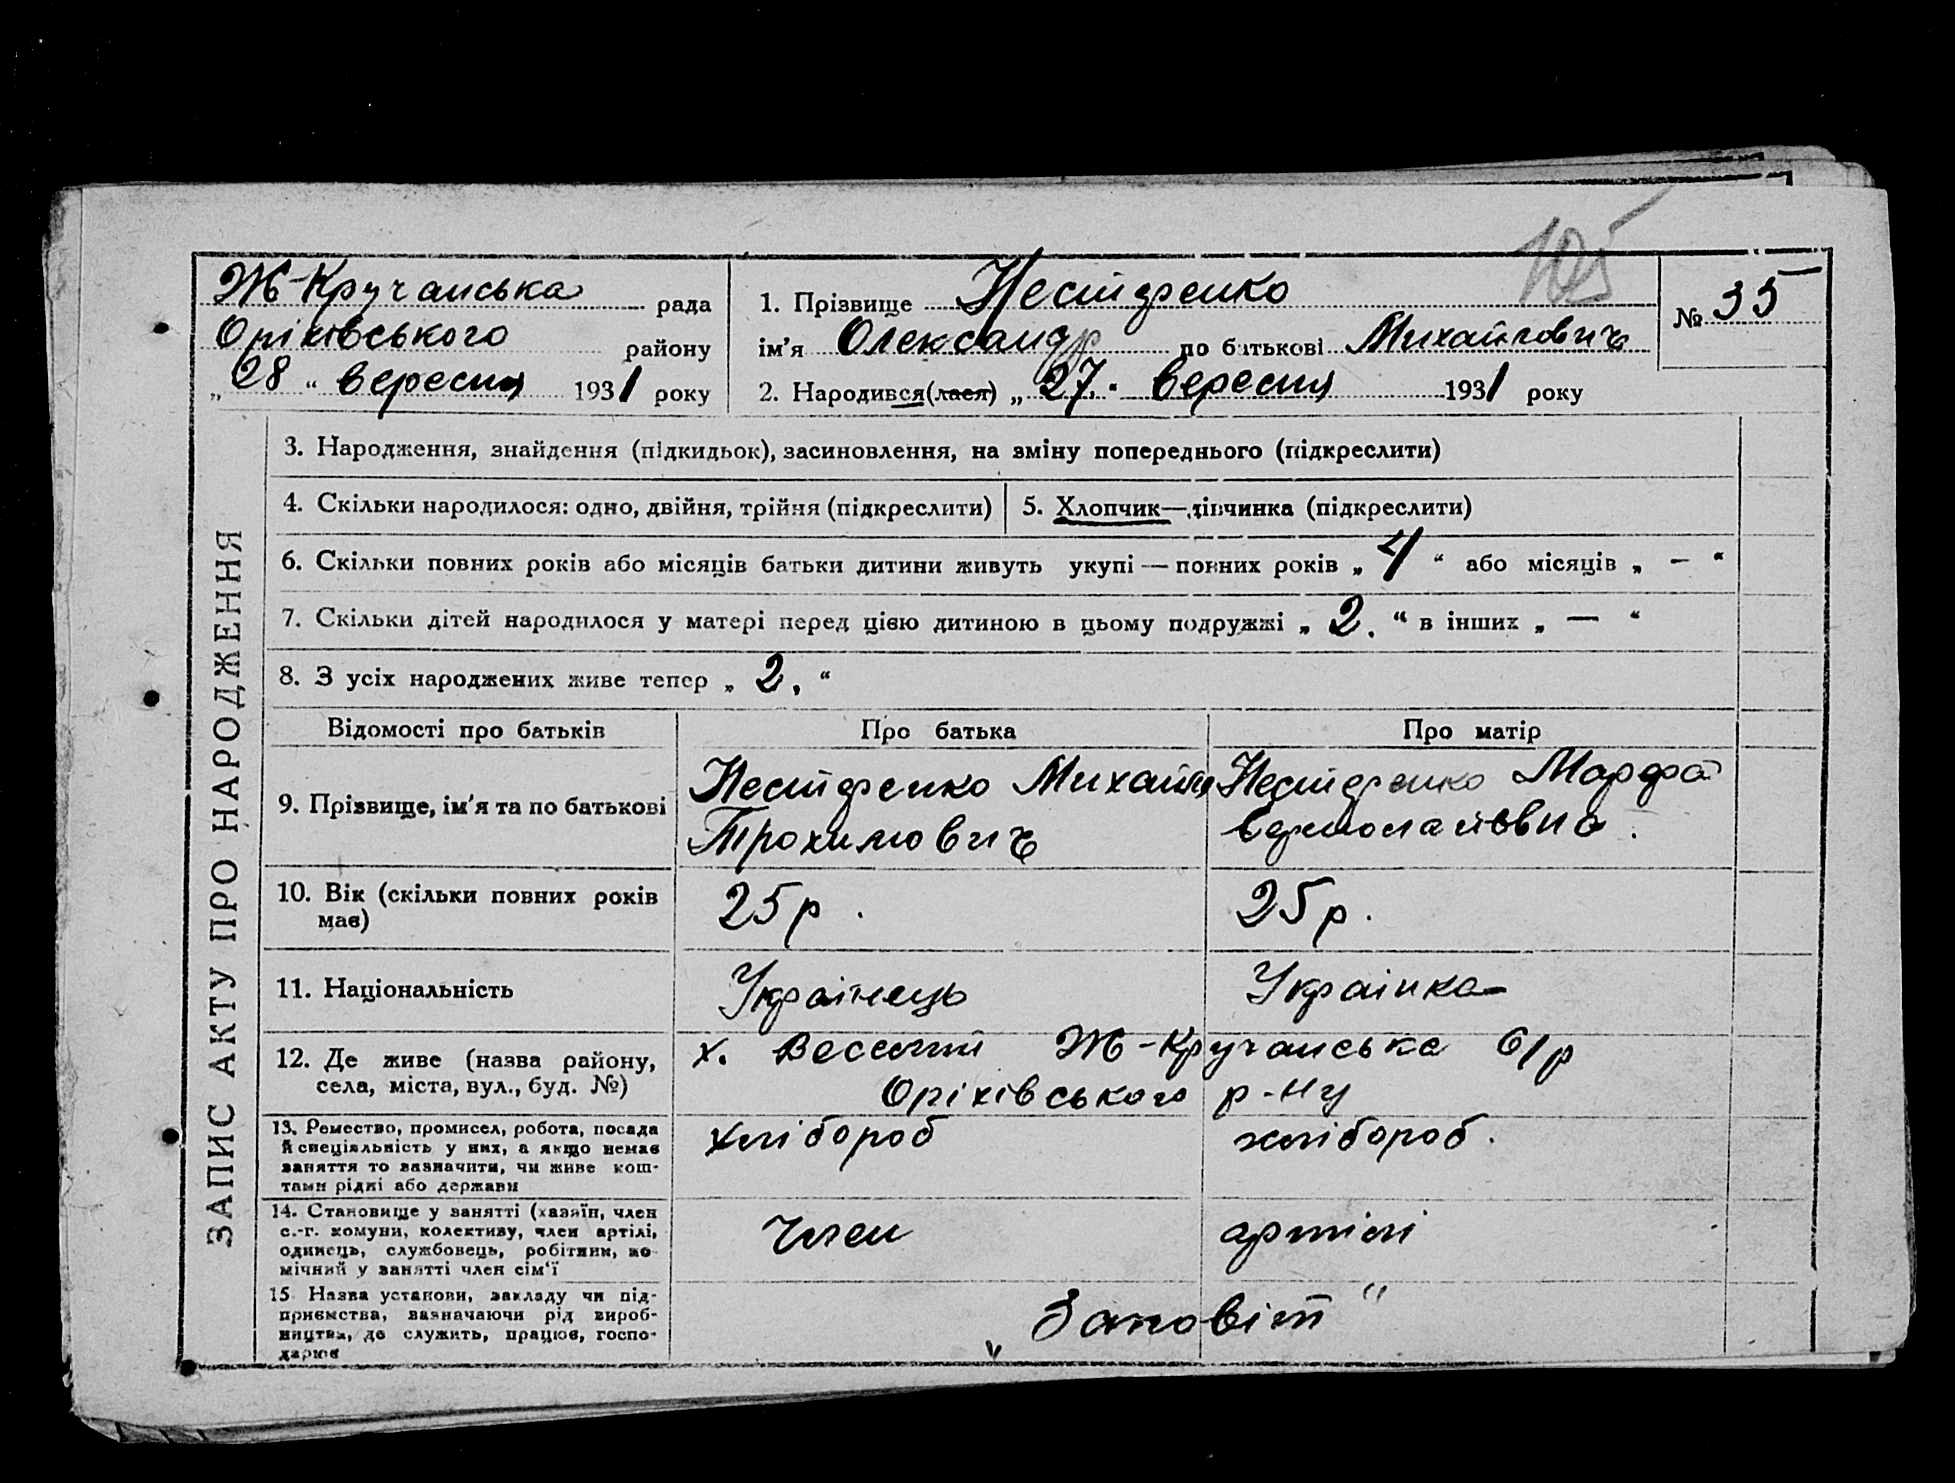 105
Ж-Кручанська рада
Оріхівського району
„28“ вересня 1931 року
1. Прізвище Нестеренко
ім’я Олександр по батькові Михайлович
2. Народився(лася) „27.“ вересня 1931 року
№ 35
ЗАПИС АКТУ ПРО НАРОДЖЕННЯ
3. Народження, знайдення (підкидьок), засиновлення, на зміну попереднього (підкреслити)
4. Скільки народилося: одно, двійня, трійня (підкреслити)
5. Хлопчик—дівчинка (підкреслити)
6. Скільки повних років або місяців батьки дитини живуть укупі — повних років „4“ або місяців „—“
7. Скільки дітей народилося у матері перед цією дитиною в цьому подружжі „2.“ в інших „—“
8. З усіх народжених живе тепер „2.“
Відомості про батьків Про батька Про матір
9. Прізвище, ім’я та по батькові
Нестеренко Михайло
Трохимович
Нестеренко Марфа
Єрмолаївна.
10. Вік (скільки повних років
має)
25 р.
25 р.
11. Національність
Українець
Українка
12. Де живе (назва району,
села, міста, вул., буд. №)
х. Веселий Ж-Кручанська с/р
Оріхівського р-ну
13. Ремество, промисел, робота, посада
й спеціяльність у них, а якщо немає
заняття то зазначити, чи живе кош-
тами рідні або держави
хлібороб
хлібороб.
14. Становище у занятті (хазяїн, член
с.-г. комуни, колективу, член артілі,
одинець, службовець, робітник, по-
мічний у занятті член сім’ї
член артілі
15 Назва установи, закладу чи під-
приємства, вазначаючи рід вироб-
ництва, де служить, працює, госпо-
дарює
„Заповіт“